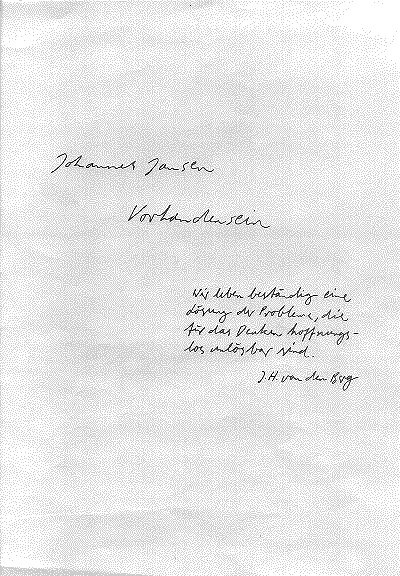 Johannes Jansen
Vorhandensein
Wir leben beständig eine
Lösung der Probleme, die
für das Denken hoffnungs-
los unlösbar sind.
J.H. van den Berg